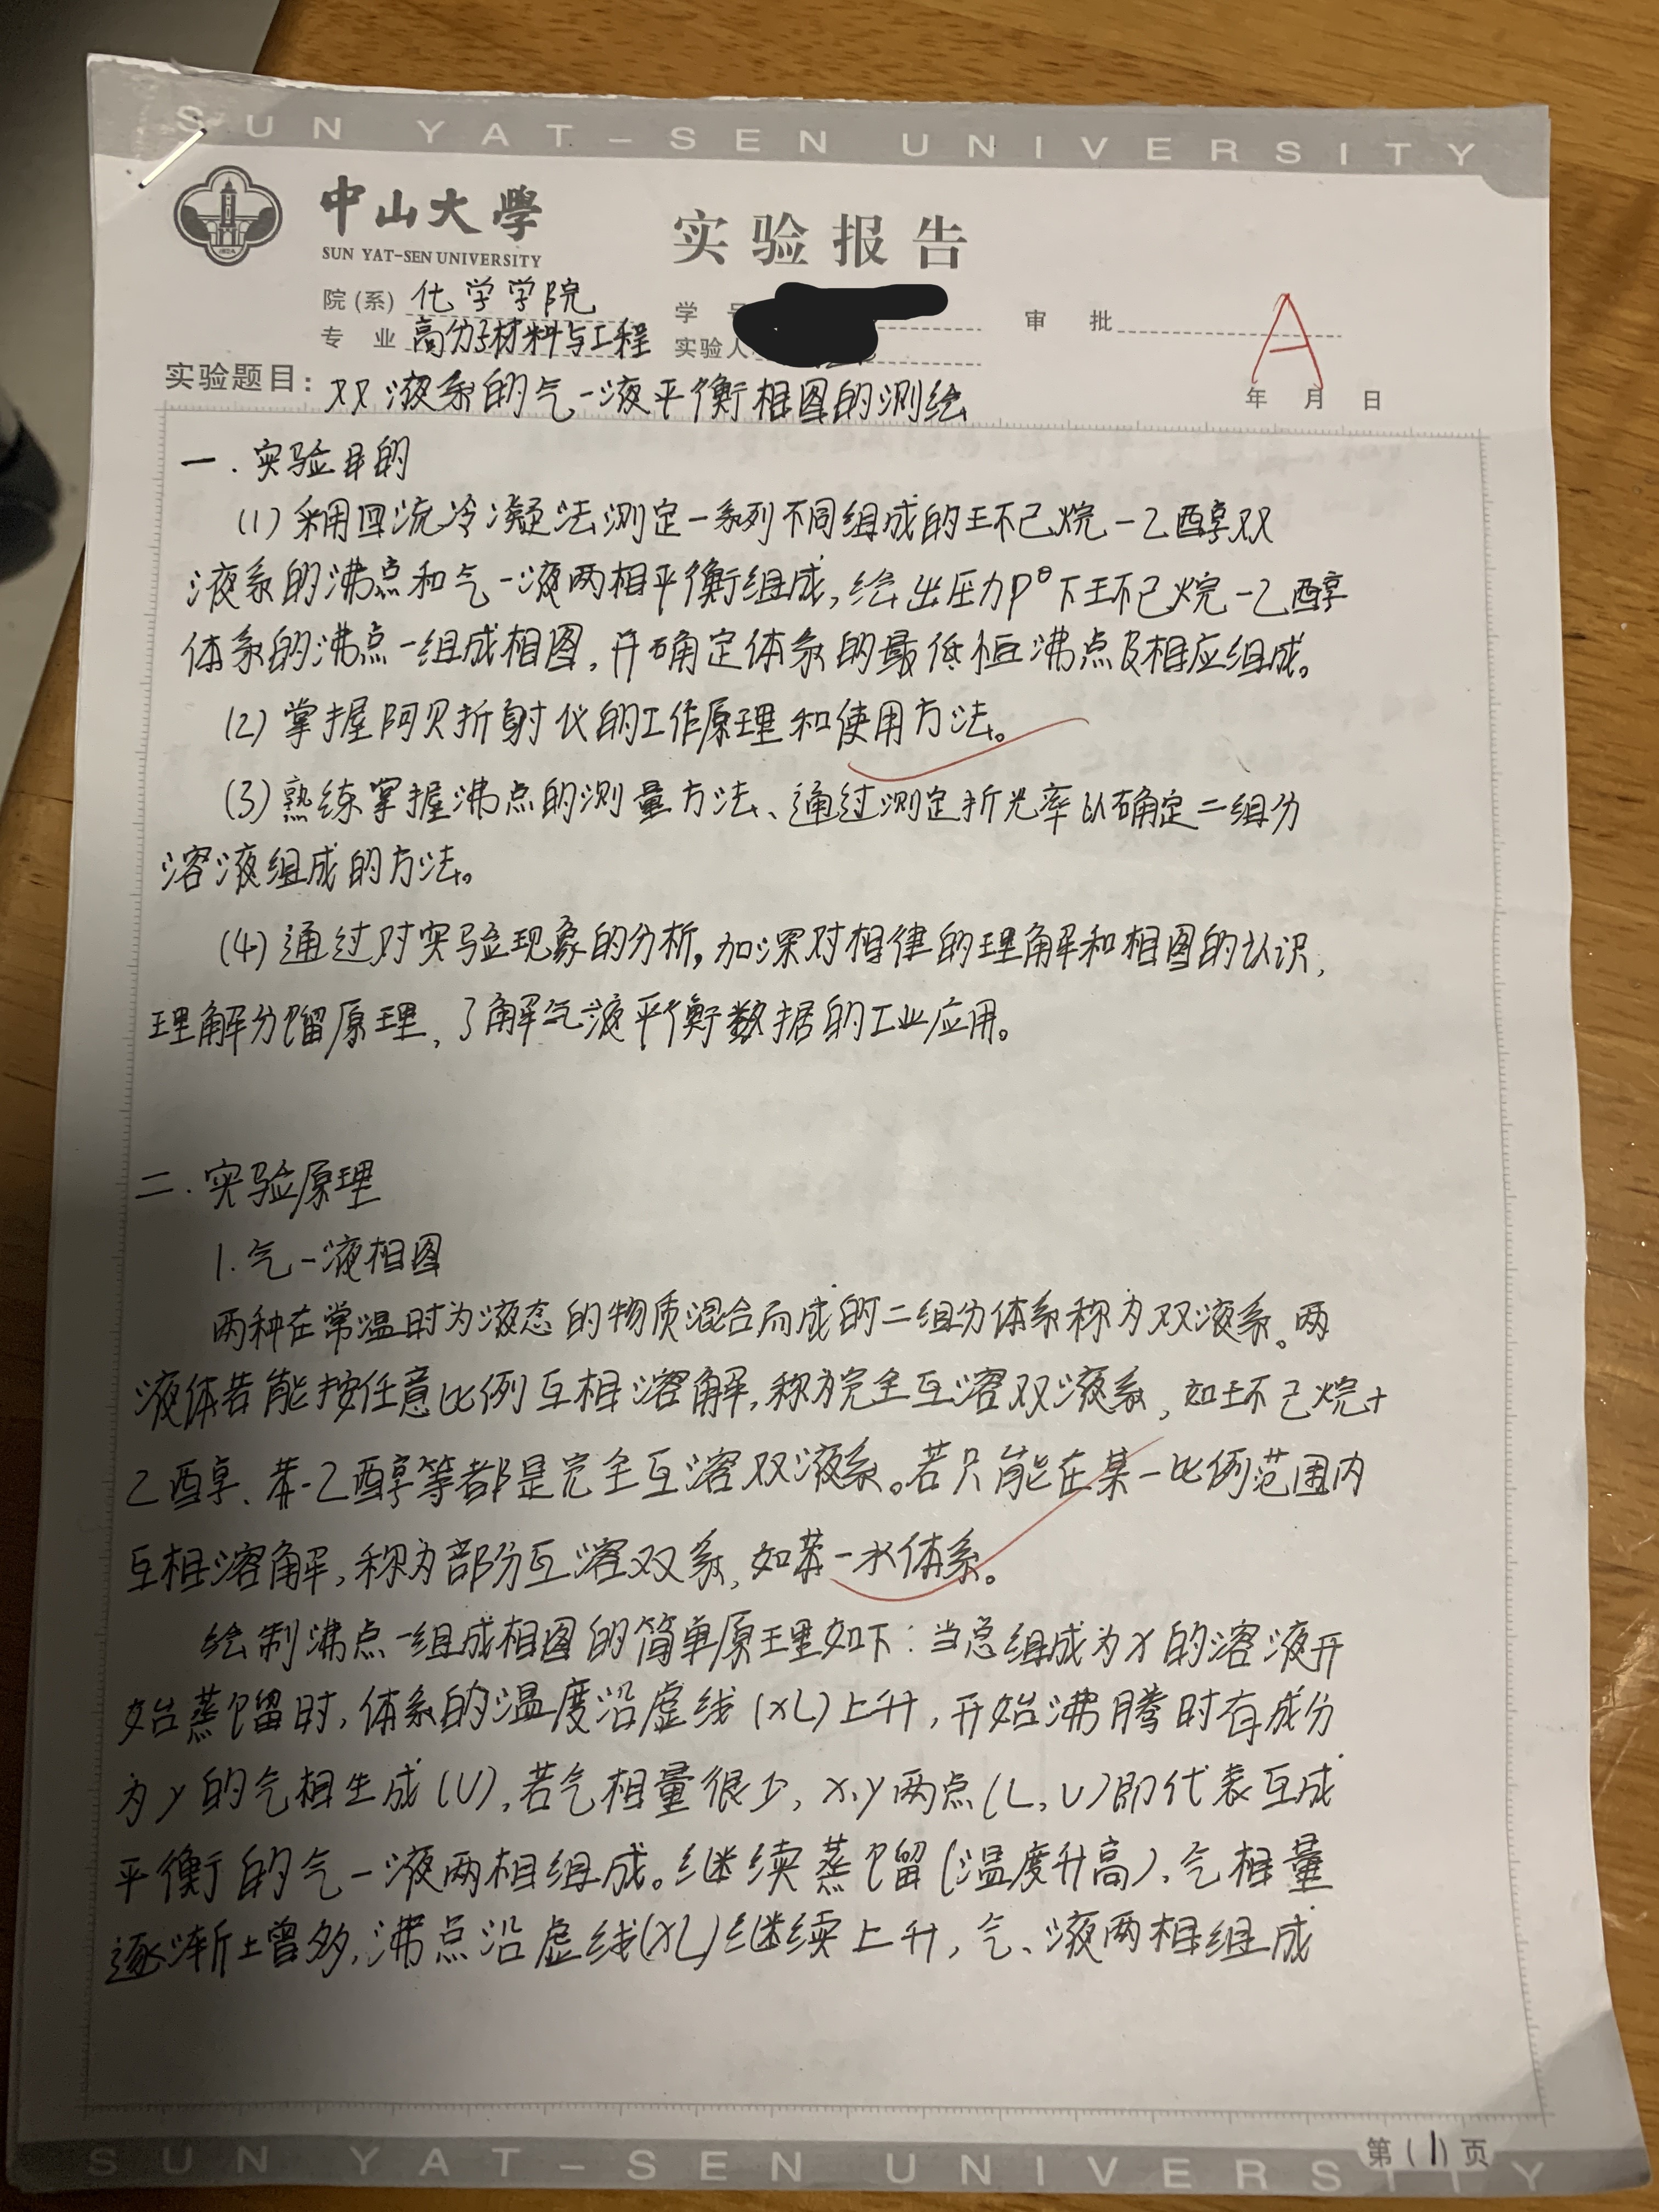 SUN YAT-SEN UNIVERSITY
中山大學
SUN YAT-SEN UNIVERSITY
实验报告
院(系) 化学学院
学号
审批
A
专业 高分子材料与工程
实验人
年 月 日
实验题目: 双液系的气-液平衡相图的测绘
一.实验目的
(1)采用回流冷凝法测定一系列不同组成的环己烷-乙醇双
液系的沸点和气-液两相平衡组成,绘出压力P^θ下环己烷-乙醇
体系的沸点-组成相图,并确定体系的最低恒沸点及相应组成。
(2)掌握阿贝折射仪的工作原理和使用方法。
(3)熟练掌握沸点的测量方法、通过测定折光率以确定二组分
溶液组成的方法。
(4)通过对实验现象的分析,加深对相律的理解和相图的认识,
理解分馏原理,了解气液平衡数据的工业应用。
二.实验原理
1.气-液相图
两种在常温时为液态的物质混合而成的二组分体系称为双液系。两
液体若能按任意比例互相溶解,称为完全互溶双液系,如环己烷+
乙醇、苯-乙醇等都是完全互溶双液系。若只能在某一比例范围内
互相溶解,称为部分互溶双系,如苯-水体系。
绘制沸点-组成相图的简单原理如下:当总组成为x的溶液开
始蒸馏时,体系的温度沿虚线(xL)上升,开始沸腾时有成分
为y的气相生成(U),若气相量很少,x、y两点(L,U)即代表互成
平衡的气-液两相组成。继续蒸馏(温度升高),气相量
逐渐增多,沸点沿虚线(xL)继续上升,气、液两相组成
第(1)页
SUN YAT-SEN UNIVERSITY